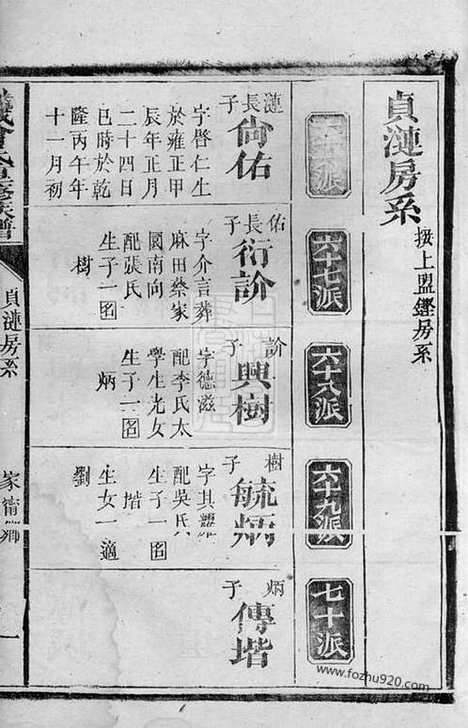 貞漣房系
接上盟鏗房系
六十七派
六十八派
六十九派
七十派
漣長子
尙佑
字啓仁生
於雍正甲
辰年正月
二十四日
巳時於乾
隆丙午年
十一月初
佑長子
衍訡
字介言葬
麻田蔡家
園南向
配張氏
生子一名
樹
訡子
興樹
字德滋
配李氏太
學生光女
生子一名
炳
樹子
毓炳
字其耀
配吳氏
生子一名
堦
生女一適
劉
炳子
傳堦
貞漣房系
一
www.fozhu920.com